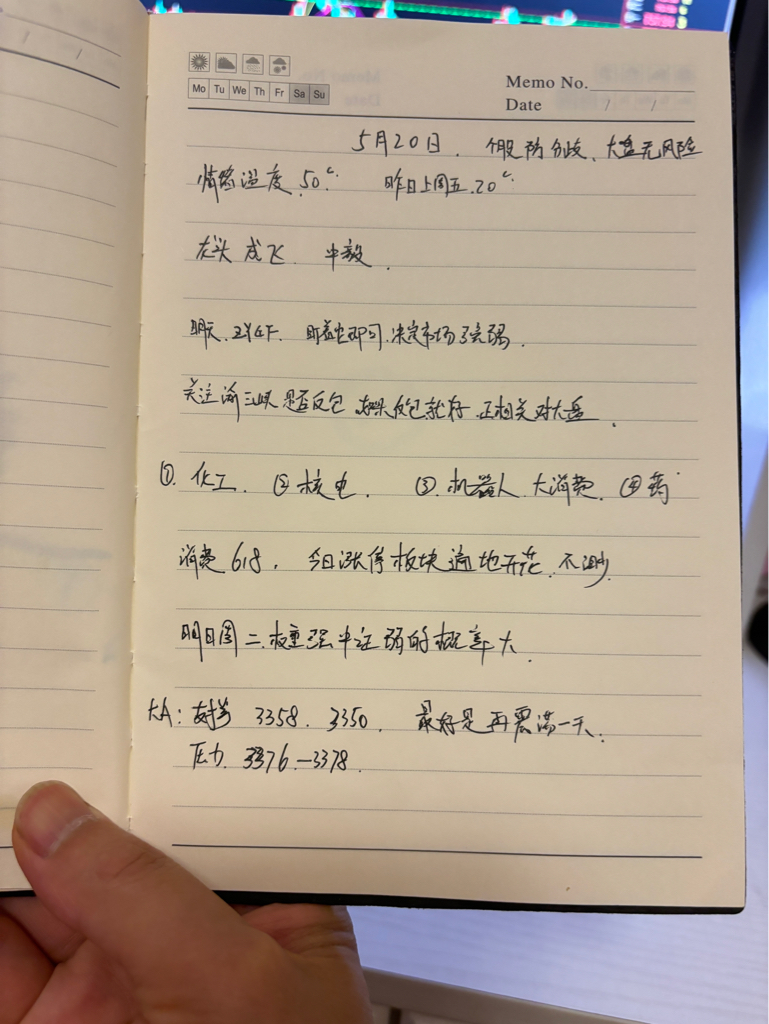 Mo Tu We Th Fr Sa Su
Memo No.
Date / /
5月20日. 个股防分歧、大盘无风险
情绪温度.50℃. 昨日上周五.70℃.
龙头 成飞. 中毅.
明天. 即可.决定市场强弱.
关注渝三峡是否反包 反包就好.正相关对大盘.
①. 化工. ②核电. ③.机器人.大消费. ④药
消费618. 今日涨停板块遍地开花.不
明日周二.权重强中证弱的概率大.
大A: 支撑 3358. 3350. 最好是再震荡一天.
压力. 3376—3378.